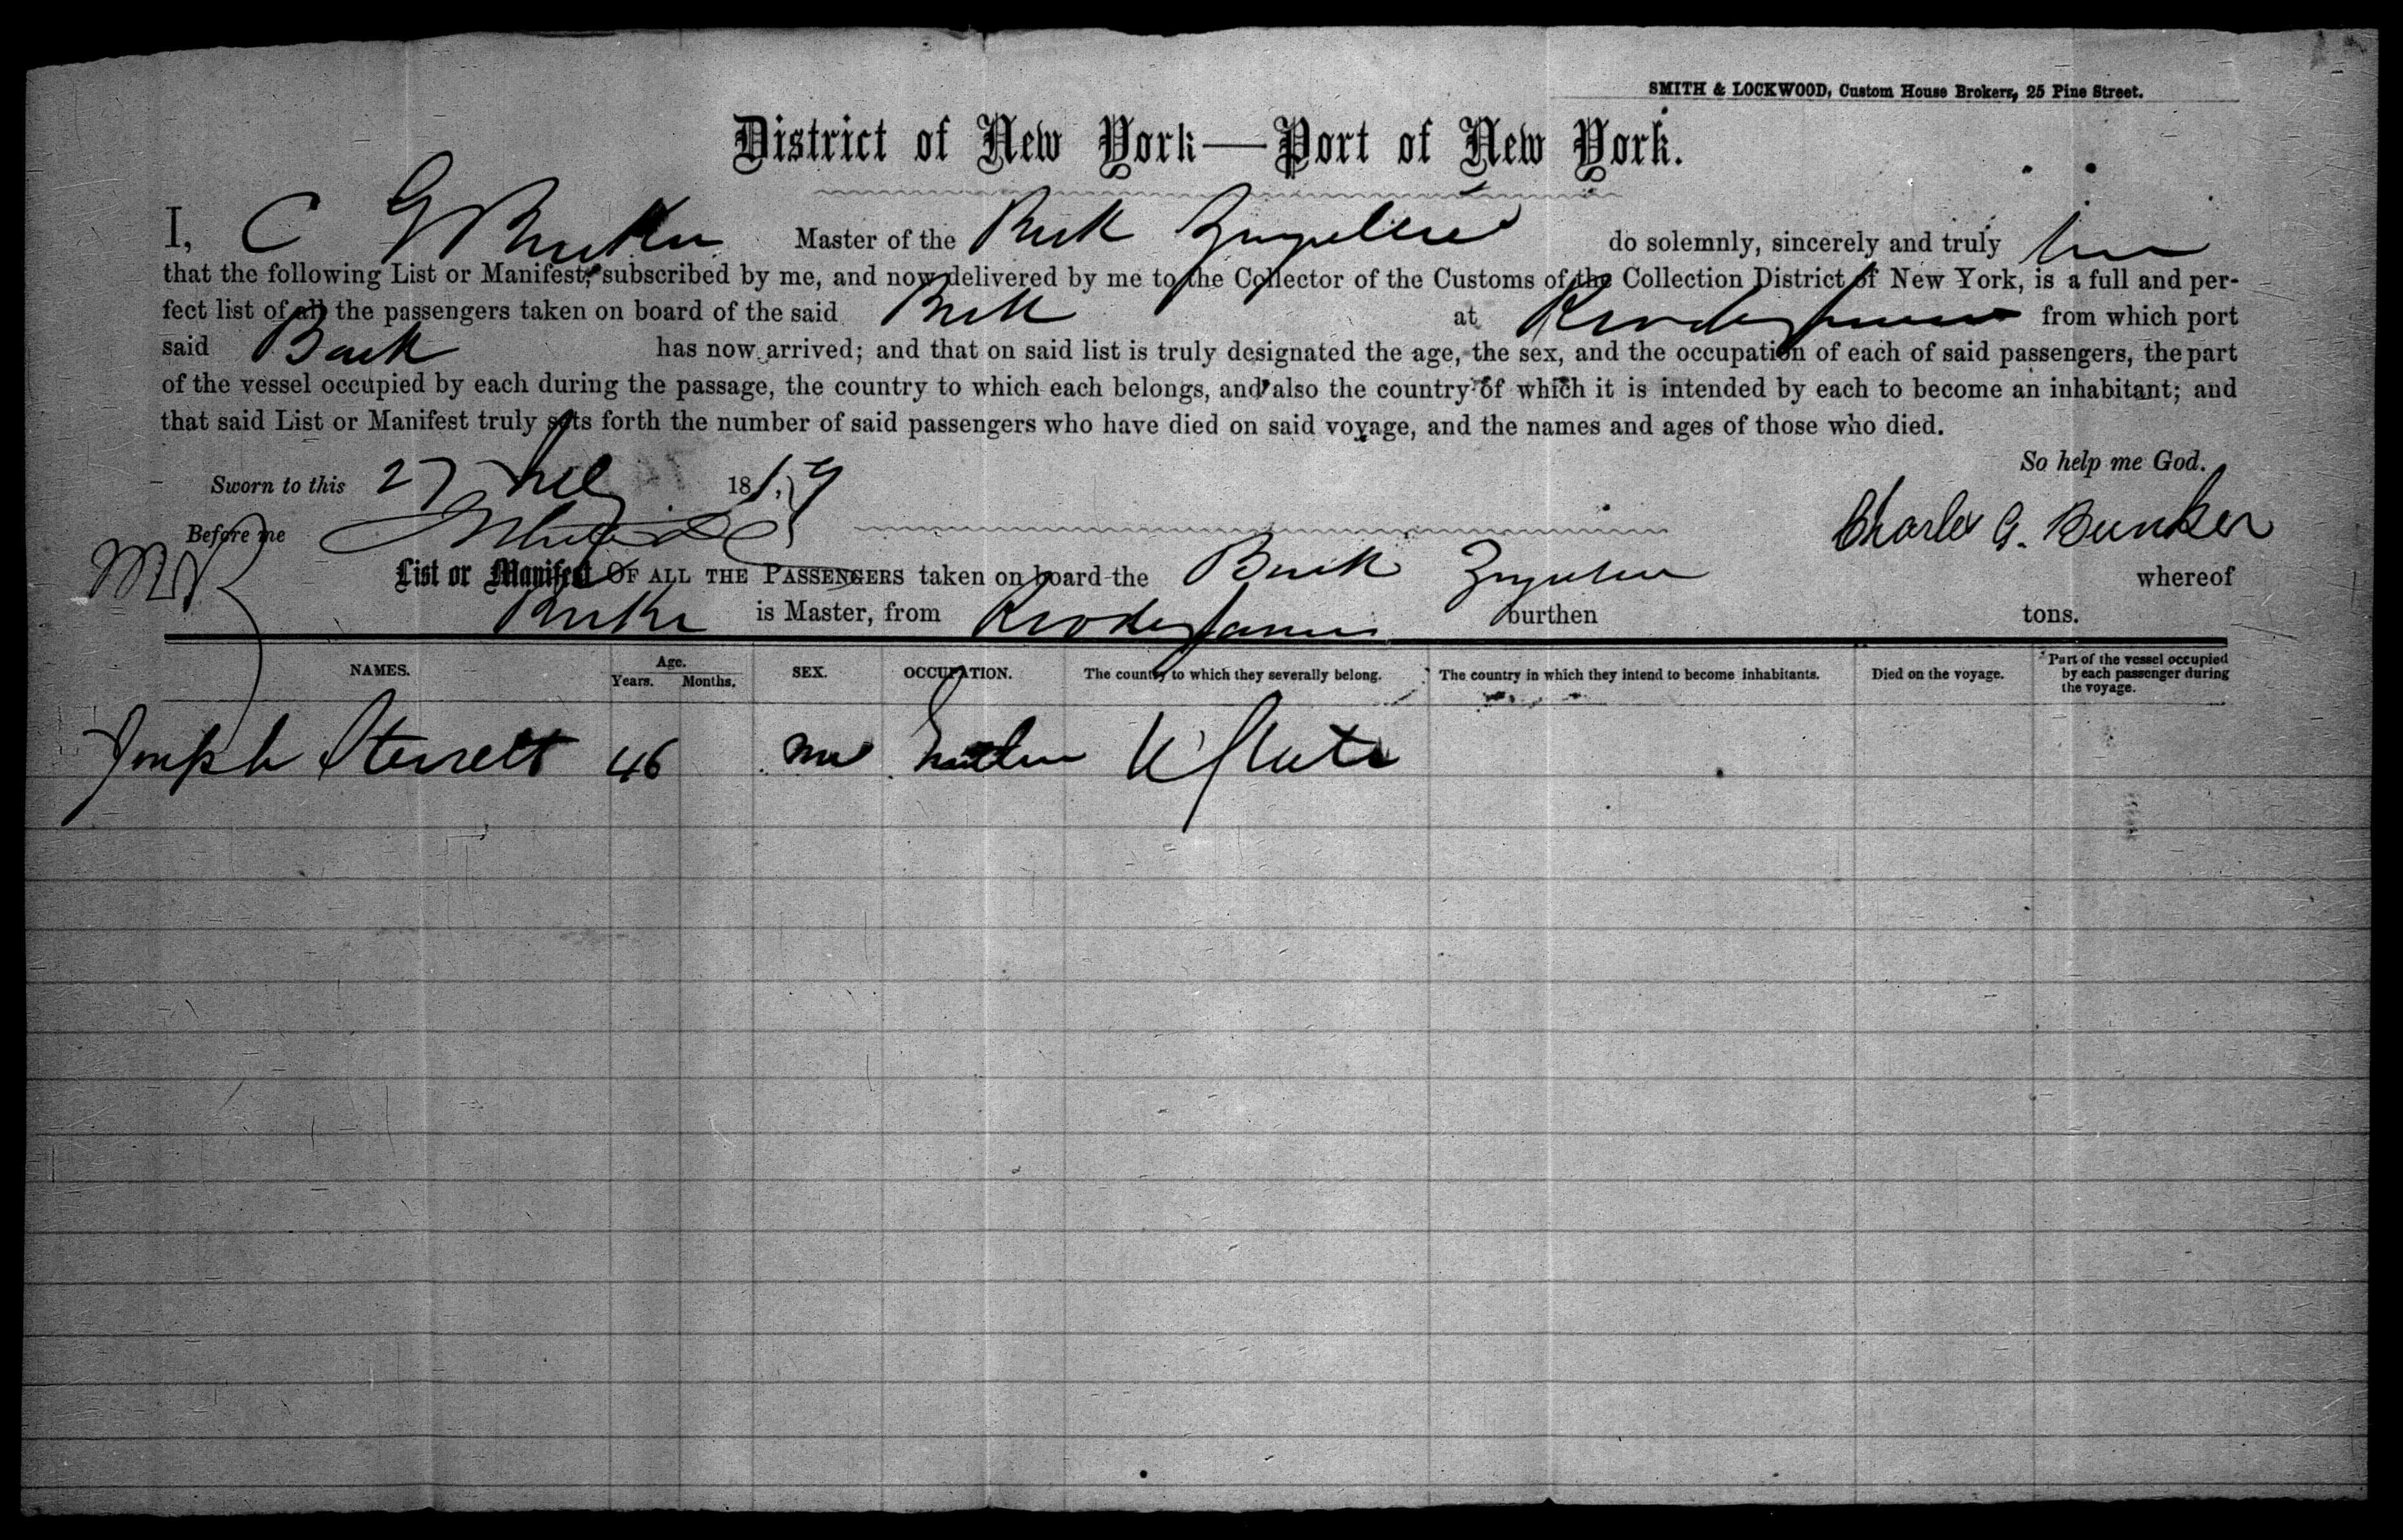 SMITH & LOCKWOOD, Custom House Brokers, 25 Pine Street.
District of New York—Port of New York.
I, C G Bunker Master of the Bark do solemnly, sincerely and truly
that the following List or Manifest, subscribed by me, and now delivered by me to the Collector of the Customs of the Collection District of New York, is a full and per-
fect list of all the passengers taken on board of the said Bark at from which port
said Bark has now arrived; and that on said list is truly designated the age, the sex, and the occupation of each of said passengers, the part
of the vessel occupied by each during the passage, the country to which each belongs, and also the country of which it is intended by each to become an inhabitant; and
that said List or Manifest truly sets forth the number of said passengers who have died on said voyage, and the names and ages of those who died.
So help me God.
Sworn to this 27 1859
Before me
Charles G. Bunker
List or Manifest OF ALL THE PASSENGERS taken on board the Bark whereof
Bunker is Master, from burthen tons.
NAMES. Age. Years. Months. SEX. OCCUPATION. The country to which they severally belong. The country in which they intend to become inhabitants. Died on the voyage. Part of the vessel occupied by each passenger during the voyage.
Joseph Sterrett 46 U States